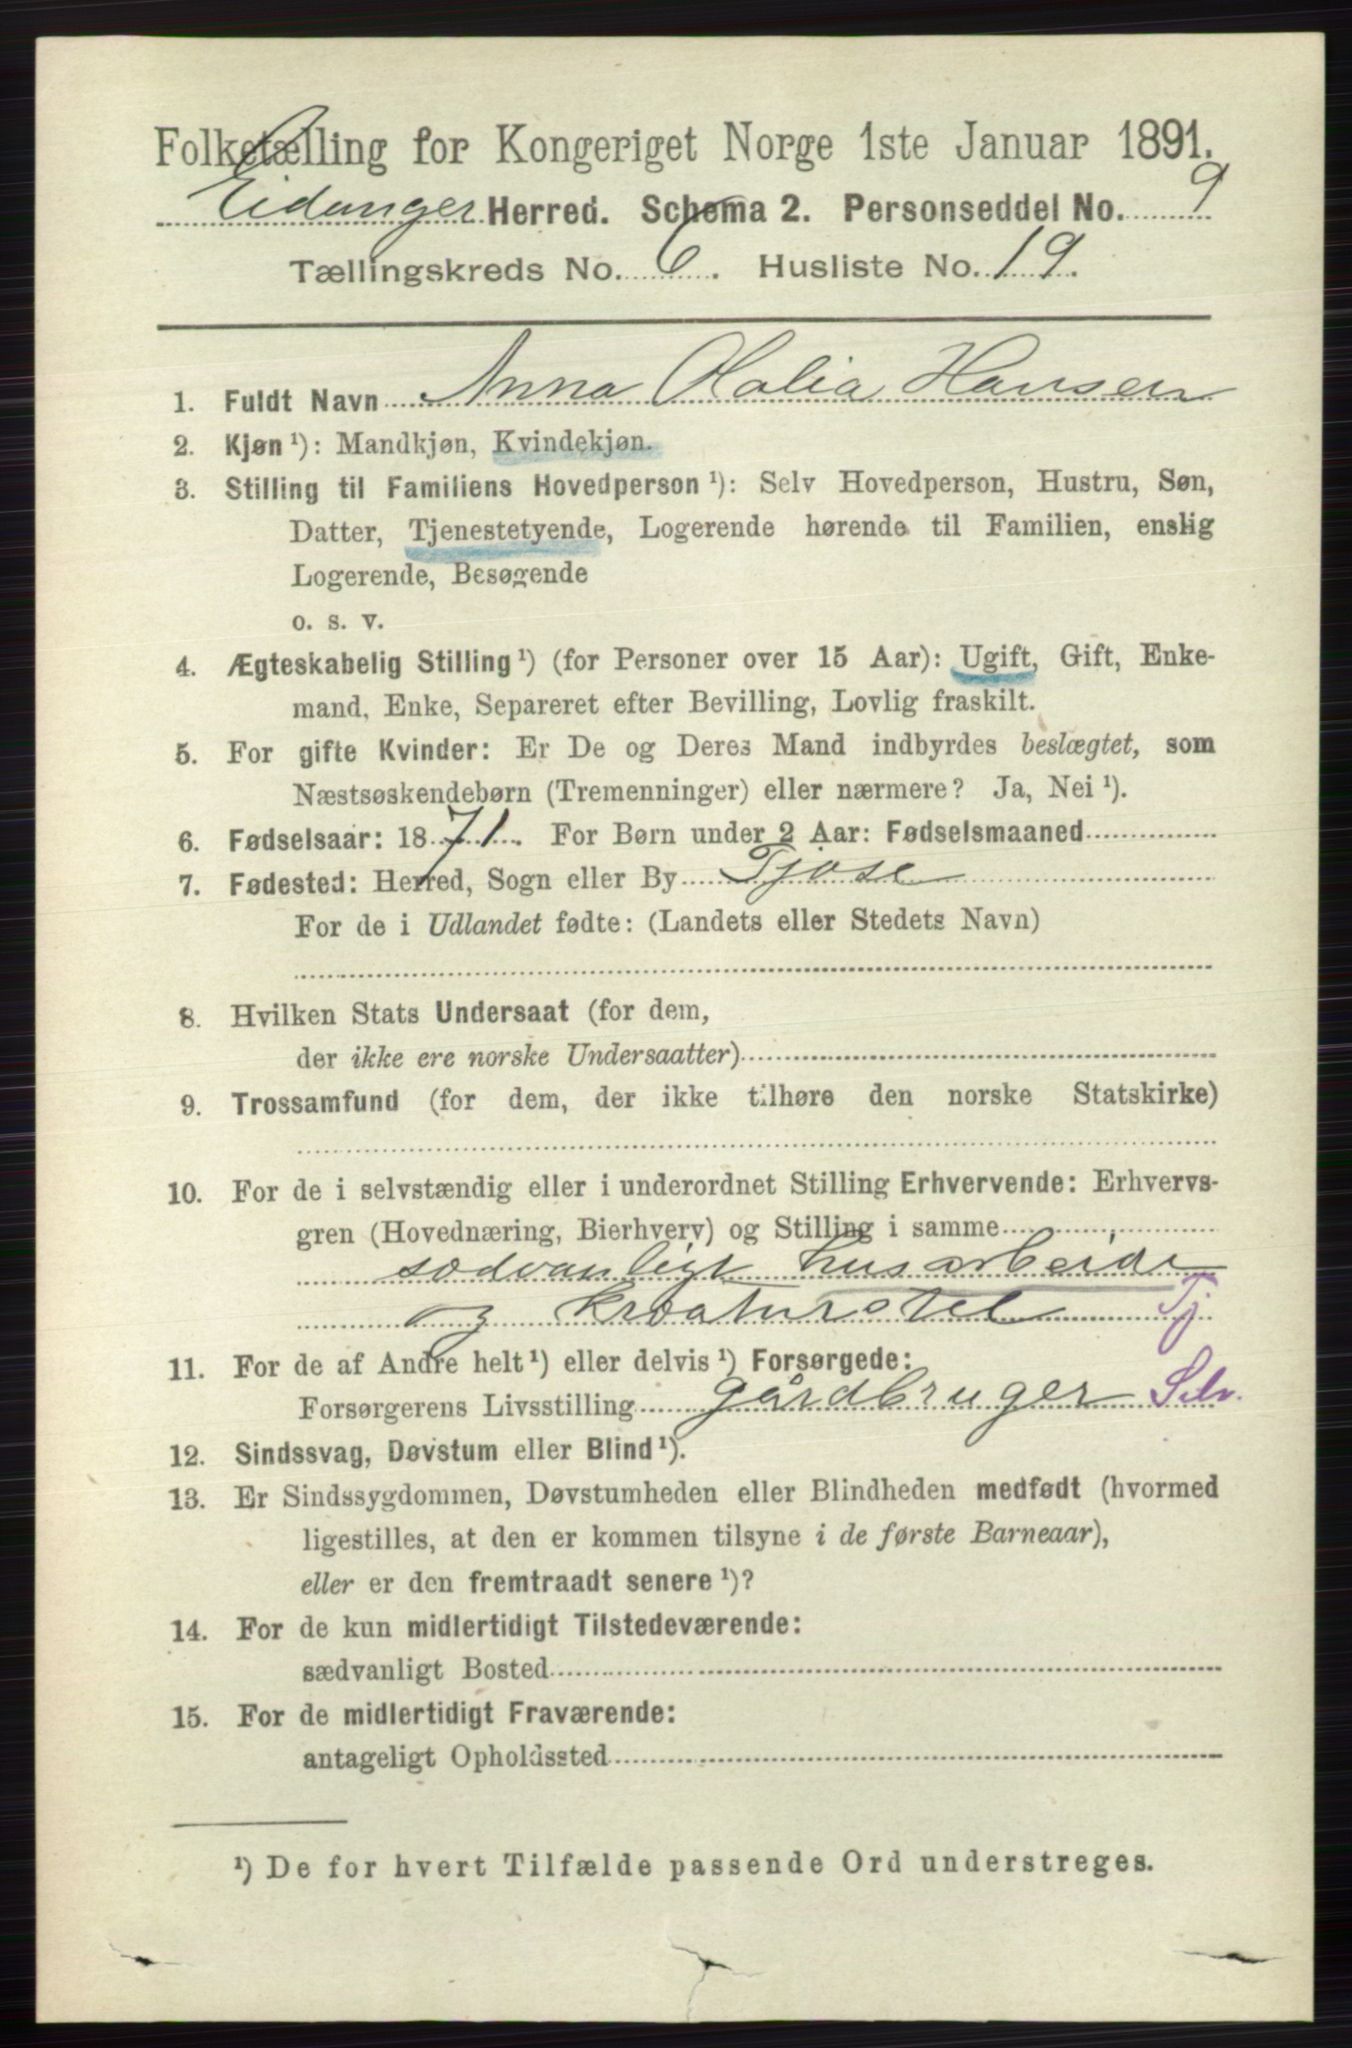 Folketælling for Kongeriget Norge 1ste Januar 1891.
Eidanger Herred. Schema 2. Personseddel No. 9
Tællingskreds No. 6. Husliste No. 19.
1. Fuldt Navn Anna Olalia Hansen
2. Kjøn ¹): Mandkjøn, Kvindekjøn.
3. Stilling til Familiens Hovedperson ¹): Selv Hovedperson, Hustru, Søn,
Datter, Tjenestetyende, Logerende hørende til Familien, enslig
Logerende, Besøgende
o. s. v.
4. Ægteskabelig Stilling ¹) (for Personer over 15 Aar): Ugift, Gift, Enke-
mand, Enke, Separeret efter Bevilling, Lovlig fraskilt.
5. For gifte Kvinder: Er De og Deres Mand indbyrdes beslægtet, som
Næstsøskendebørn (Tremenninger) eller nærmere? Ja, Nei ¹).
6. Fødselsaar: 1871. For Børn under 2 Aar: Fødselsmaaned
7. Fødested: Herred, Sogn eller By Tjøse
For de i Udlandet fødte: (Landets eller Stedets Navn)
8. Hvilken Stats Undersaat (for dem,
der ikke ere norske Undersaatter)
9. Trossamfund (for dem, der ikke tilhøre den norske Statskirke)
10. For de i selvstændig eller i underordnet Stilling Erhvervende: Erhvervs-
gren (Hovednæring, Bierhverv) og Stilling i samme
sædvanligt husarbeide
og kreaturstel Tj
11. For de af Andre helt ¹) eller delvis ¹) Forsørgede:
Forsørgerens Livsstilling gårdbruger Selv.
12. Sindssvag, Døvstum eller Blind ¹).
13. Er Sindssygdommen, Døvstumheden eller Blindheden medfødt (hvormed
ligestilles, at den er kommen tilsyne i de første Barneaar),
eller er den fremtraadt senere ¹)?
14. For de kun midlertidigt Tilstedeværende:
sædvanligt Bosted
15. For de midlertidigt Fraværende:
antageligt Opholdssted
¹) De for hvert Tilfælde passende Ord understreges.